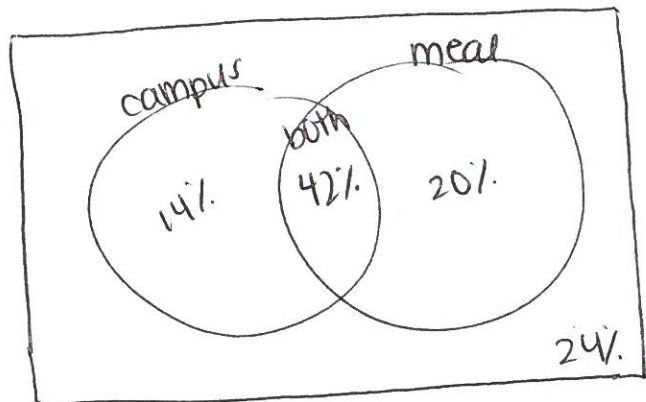 campus
meal
both
14%
42%
20%
24%